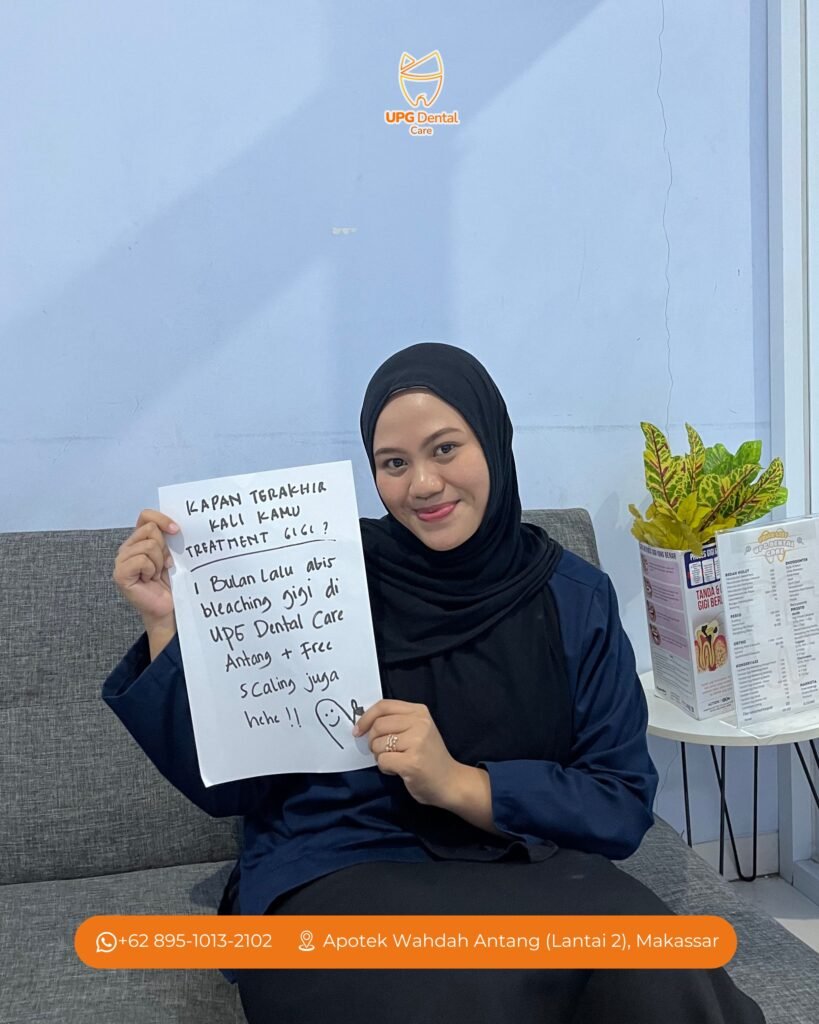 UPG Dental
Care
KAPAN TERAKHIR
KALI KAMU
TREATMENT GIGI ?
1 Bulan lalu abis
bleaching gigi di
UPG Dental Care
Antang + Free
scaling juga
hehe !!
TANDA &
GIGI BER
BEDAH MULUT
PERIO
ORTHO
KONSERVASI
ENDODONTIA
+62 895-1013-2102
Apotek Wahdah Antang (Lantai 2), Makassar